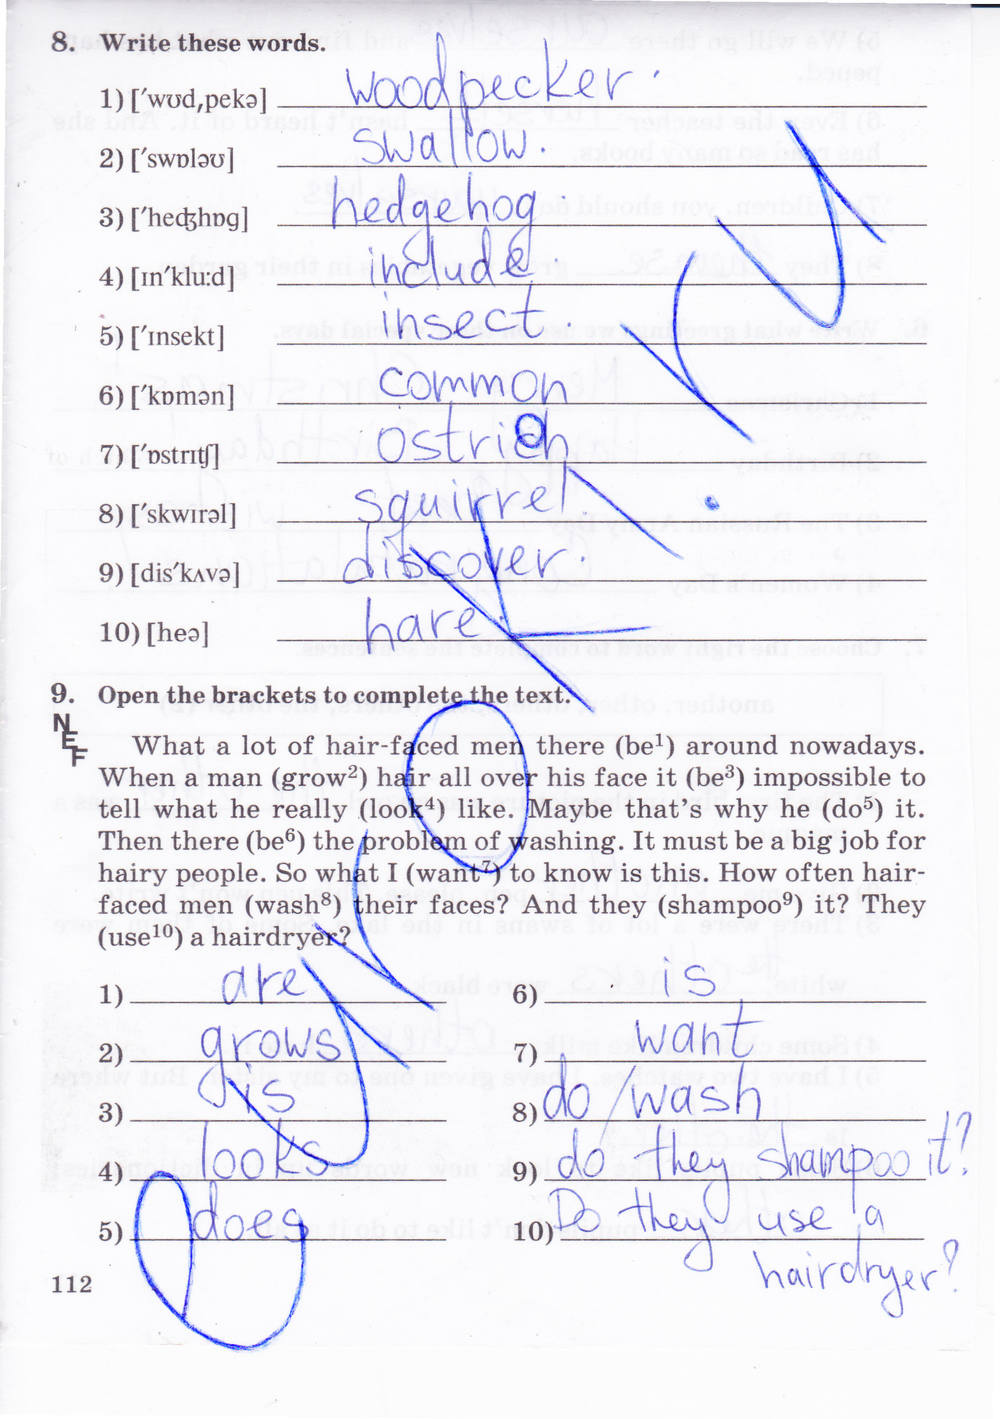 8. Write these words.
1) [ˈwʊdˌpekə] woodpecker.
2) [ˈswɒləʊ] swallow.
3) [ˈheʤhɒg] hedgehog.
4) [ɪnˈkluːd] include.
5) [ˈɪnsekt] insect.
6) [ˈkɒmən] common
7) [ˈɒstrɪʧ] ostrich
8) [ˈskwɪrəl] squirrel
9) [disˈkʌvə] discover.
10) [heə] hare
9. Open the brackets to complete the text.
NEF
What a lot of hair-faced men there (be¹) around nowadays.
When a man (grow²) hair all over his face it (be³) impossible to
tell what he really (look⁴) like. Maybe that's why he (do⁵) it.
Then there (be⁶) the problem of washing. It must be a big job for
hairy people. So what I (want⁷) to know is this. How often hair-
faced men (wash⁸) their faces? And they (shampoo⁹) it? They
(use¹⁰) a hairdryer?
1) are
2) grows
3) is
4) looks
5) does
6) is
7) want
8) do wash
9) do they shampoo it?
10) Do they use a
hairdryer?
112